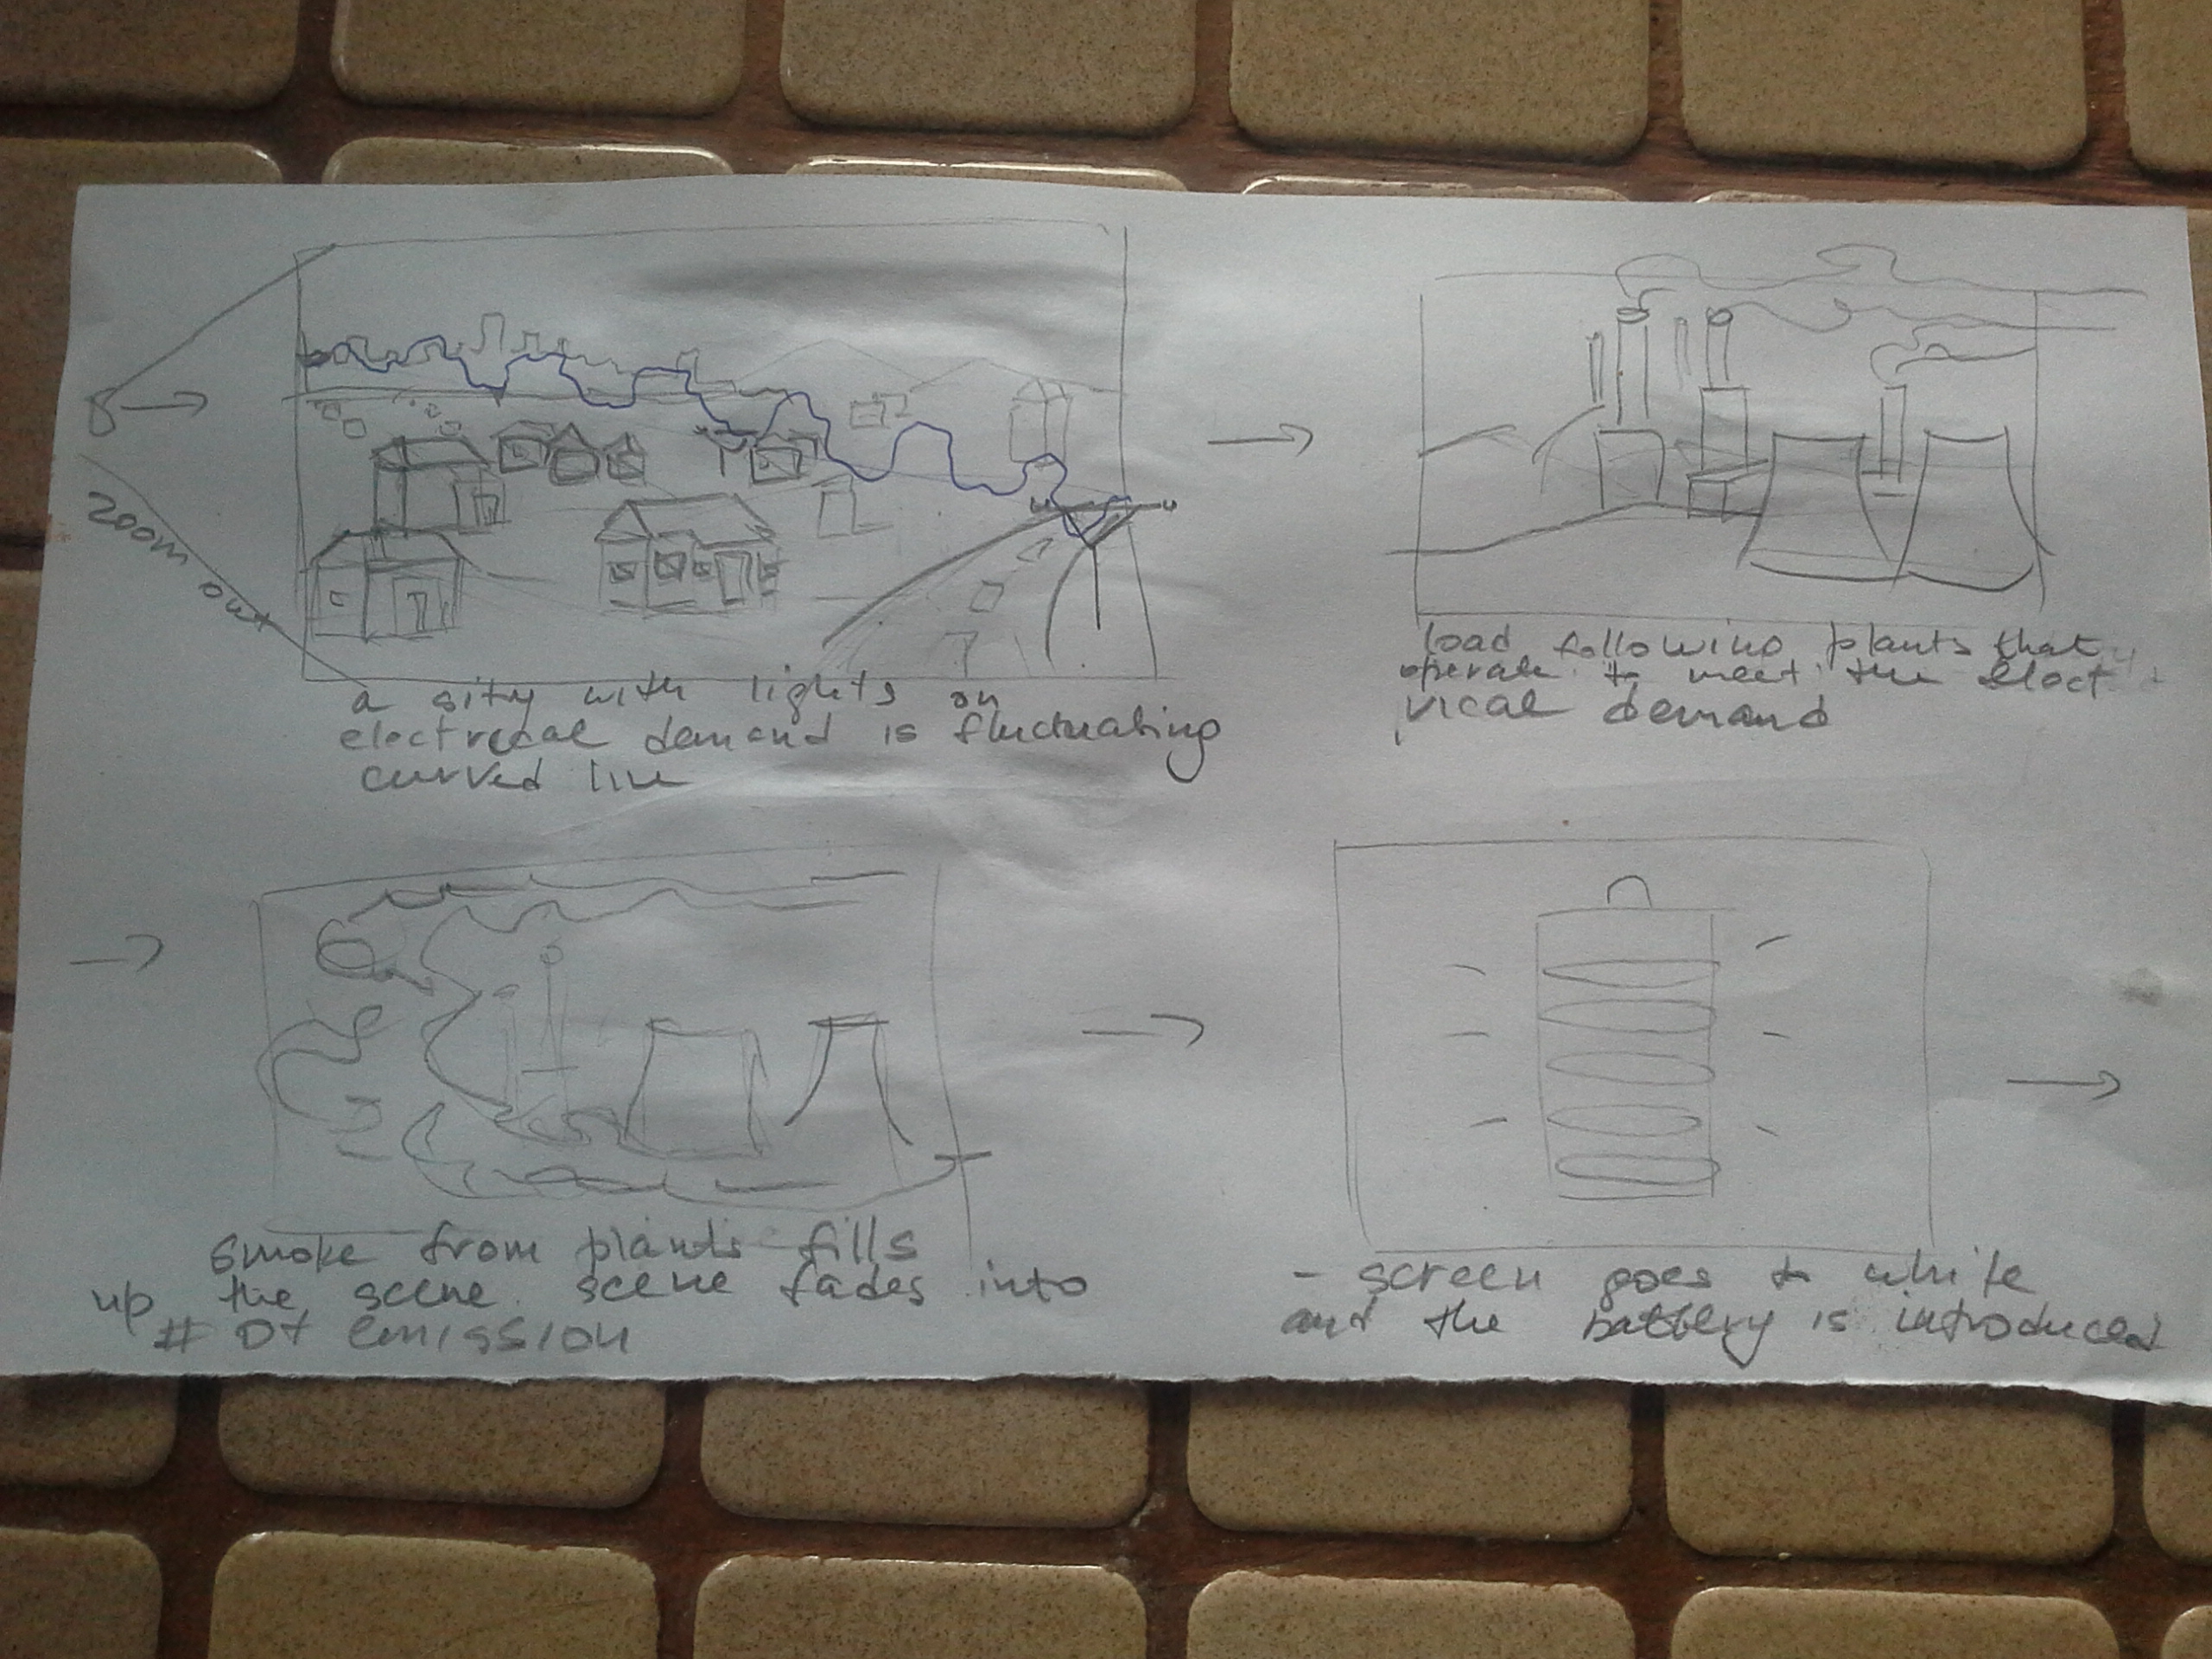 zoom out
a sity with lights on
electrical demand is fluctuating
curved line
load following plants that
operate to meet the elect
rical demand
smoke from plants fills
up the scene. scene fades into
# of emission
- screen goes to white
and the battery is introduced